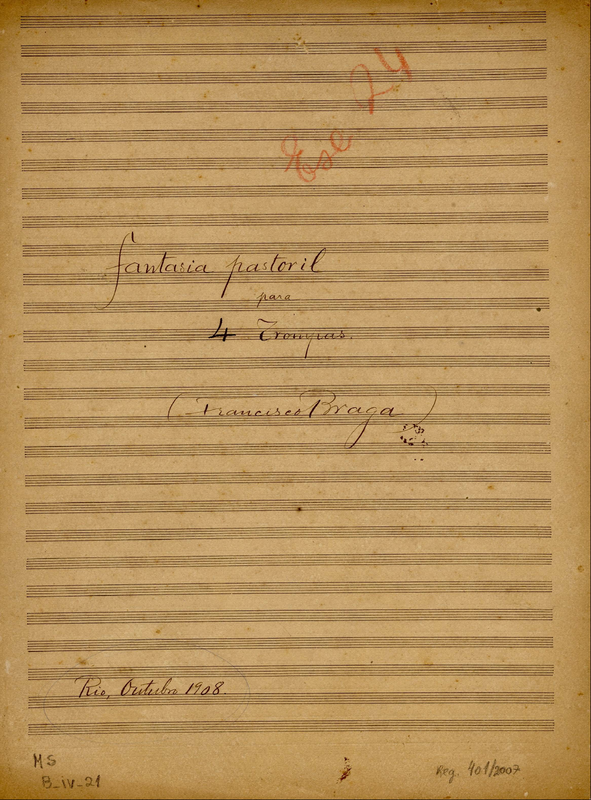 Esc 24
Fantasia pastoril
para
4 Trompas.
(Francisco Braga)
Rio, Outubro 1908.
MS
B-iv-21
Reg. 401/2007